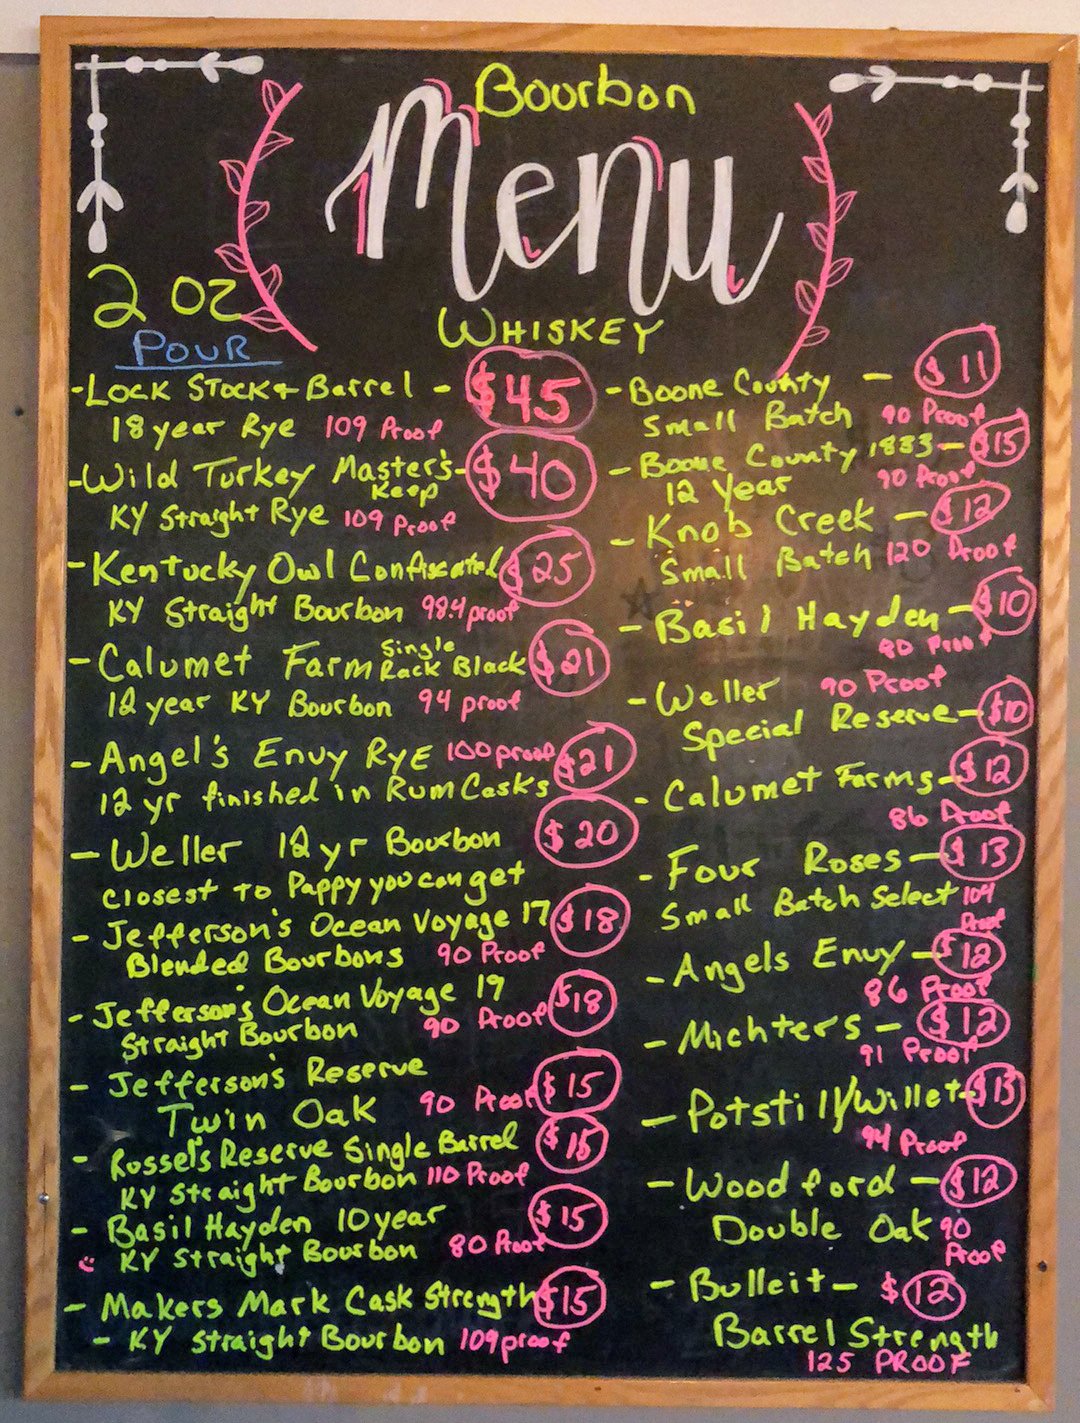 Bourbon
Menu
2 oz
Pour
Whiskey
- Lock Stock + Barrel - $45
18 year Rye 109 Proof
- Wild Turkey Master's - $40
Keep
KY Straight Rye 109 Proof
- Kentucky Owl Confiscated $25
KY Straight Bourbon 98.4 proof
- Calumet Farm Single Rack Black $21
12 year KY Bourbon 94 proof
- Angel's Envy Rye 100 proof $21
12 yr finished in Rum Casks
- Weller 12 yr Bourbon $20
closest to Pappy you can get
- Jefferson's Ocean Voyage 17 $18
Blended Bourbons 90 Proof
- Jefferson's Ocean Voyage 19 $18
Straight Bourbon 90 Proof
- Jefferson's Reserve
Twin Oak 90 Proof $15
- Russel's Reserve Single Barrel $15
KY Straight Bourbon 110 Proof
- Basil Hayden 10 year $15
KY Straight Bourbon 80 Proof
- Makers Mark Cask Strength $15
- KY Straight Bourbon 109 proof
- Boone County - $11
Small Batch 90 Proof
- Boone County 1883 - $15
12 Year 90 Proof
- Knob Creek - $12
Small Batch 120 Proof
- Basil Hayden - $10
80 Proof
- Weller 90 Proof
Special Reserve - $10
- Calumet Farms - $12
86 Proof
- Four Roses - $13
Small Batch Select 104
Proof
- Angels Envy - $12
86 Proof
- Michters - $12
91 Proof
- Potstill/Willet - $13
94 Proof
- Woodford - $12
Double Oak 90
Proof
- Bulleit - $12
Barrel Strength
125 PROOF